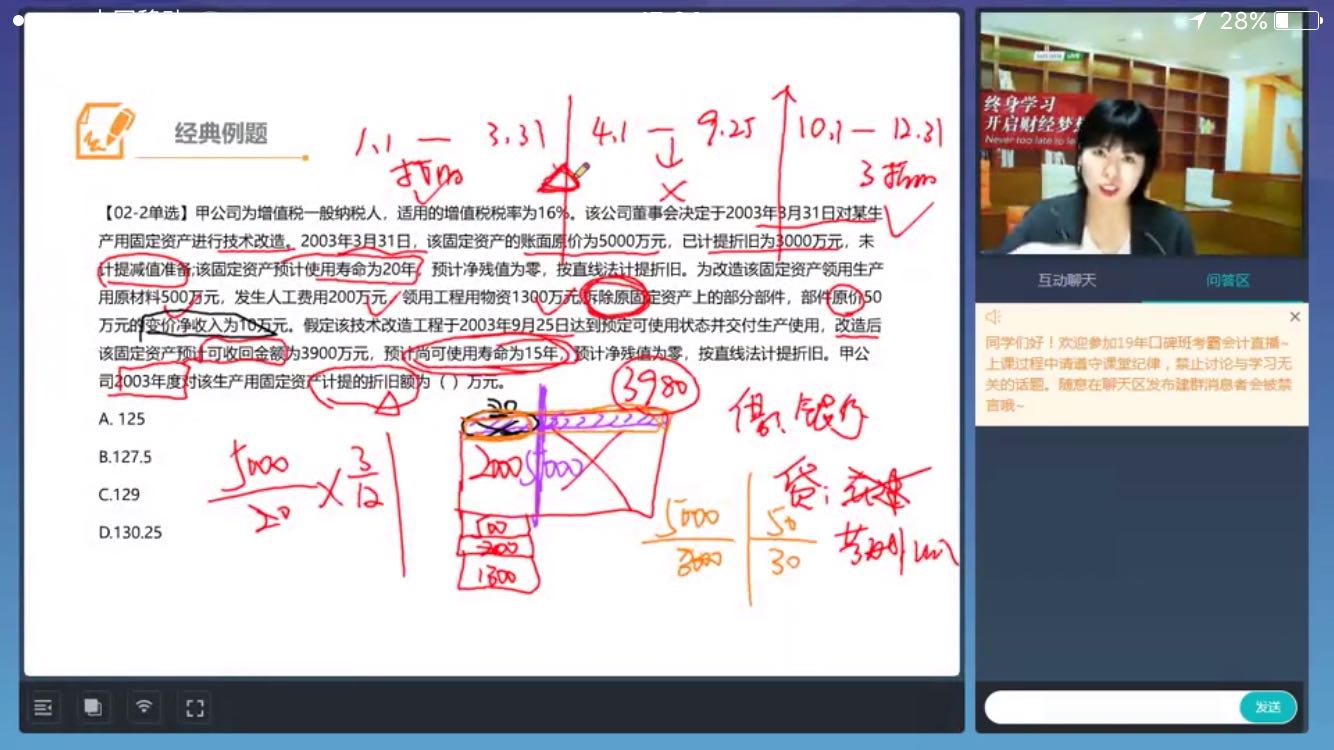 28%
经典例题
1.1 — 3.31 4.1 — 9.25 10.1 — 12.31
折旧
3折旧
【02-2单选】甲公司为增值税一般纳税人，适用的增值税税率为16%。该公司董事会决定于2003年3月31日对某生
产用固定资产进行技术改造。2003年3月31日，该固定资产的账面原价为5000万元，已计提折旧为3000万元，未
计提减值准备;该固定资产预计使用寿命为20年，预计净残值为零，按直线法计提折旧。为改造该固定资产领用生产
用原材料500万元，发生人工费用200万元，领用工程用物资1300万元;拆除原固定资产上的部分部件，部件原价50
万元的变价净收入为10万元。假定该技术改造工程于2003年9月25日达到预定可使用状态并交付生产使用，改造后
该固定资产预计可收回金额为3900万元，预计尚可使用寿命为15年，预计净残值为零，按直线法计提折旧。甲公
司2003年度对该生产用固定资产计提的折旧额为（ ）万元。
A. 125
B.127.5
C.129
D.130.25
3980
20
2000 5000
500
200
1300
5000
20
×
3
12
5000
3000
50
30
借：银行
贷：
终身学习
开启财经梦想
Never too late to le
互动聊天
问答区
同学们好！欢迎参加19年口碑班考霸会计直播~
上课过程中请遵守课堂纪律，禁止讨论与学习无
关的话题。随意在聊天区发布建群消息者会被禁
言哦~
发送